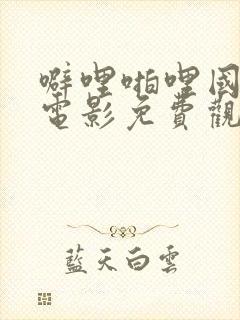 噼哩啪哩國
電影免費觀
藍天白雲